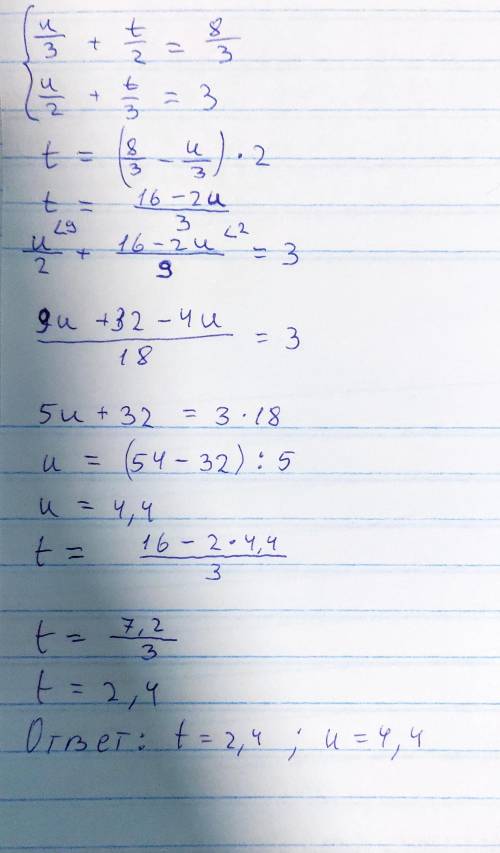 { u/3 + t/2 = 8/3
u/2 + t/3 = 3
t = (8/3 - u/3) · 2
t = (16 - 2u)/3
u<9/2 + (16 - 2u<2)/9 = 3
(9u + 32 - 4u)/18 = 3
5u + 32 = 3 · 18
u = (54 - 32) : 5
u = 4,4
t = (16 - 2 · 4,4)/3
t = 7,2/3
t = 2,4
Ответ: t = 2,4 ; u = 4,4